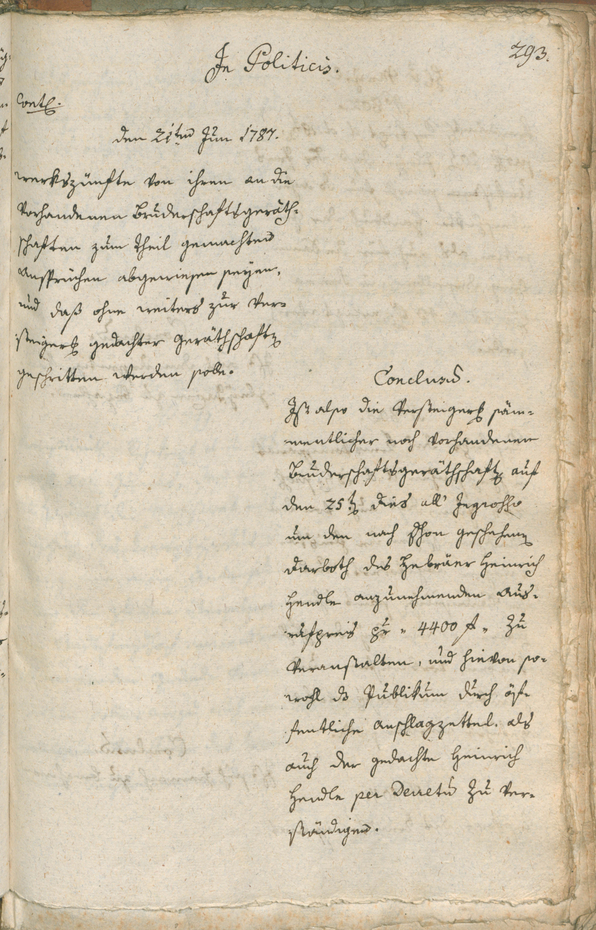 In Politicis.
293.
Contt.
den 21ten Jun 1787.
werkszünfte von ihren an die
vorhandenen Bruderschaftsgeräth-
schaften zum Theil gemachten
Ansprüchen abgewiesen seyen,
und daß ohne weiters zur Ver-
steigerg gedachter Geräthschaften
geschritten werden solle.
Conclusum.
Ist also die Versteigerg säm-
mentlicher noch vorhandenen
Bruderschaftsgeräthschaften auf
den 25ten dies all' Ingrosso
um den nach schon geschehenen
Darboth des Hebräer Heinrich
Hendle anzunehmenden Aus-
rufpreis pr " 4400 f " zu
veranstalten, und hievon so-
wohl ds Publikum durch öf-
fentliche Anschlagzettel, als
auch der gedachte Heinrich
Hendle per Decretum zu ver-
ständigen.